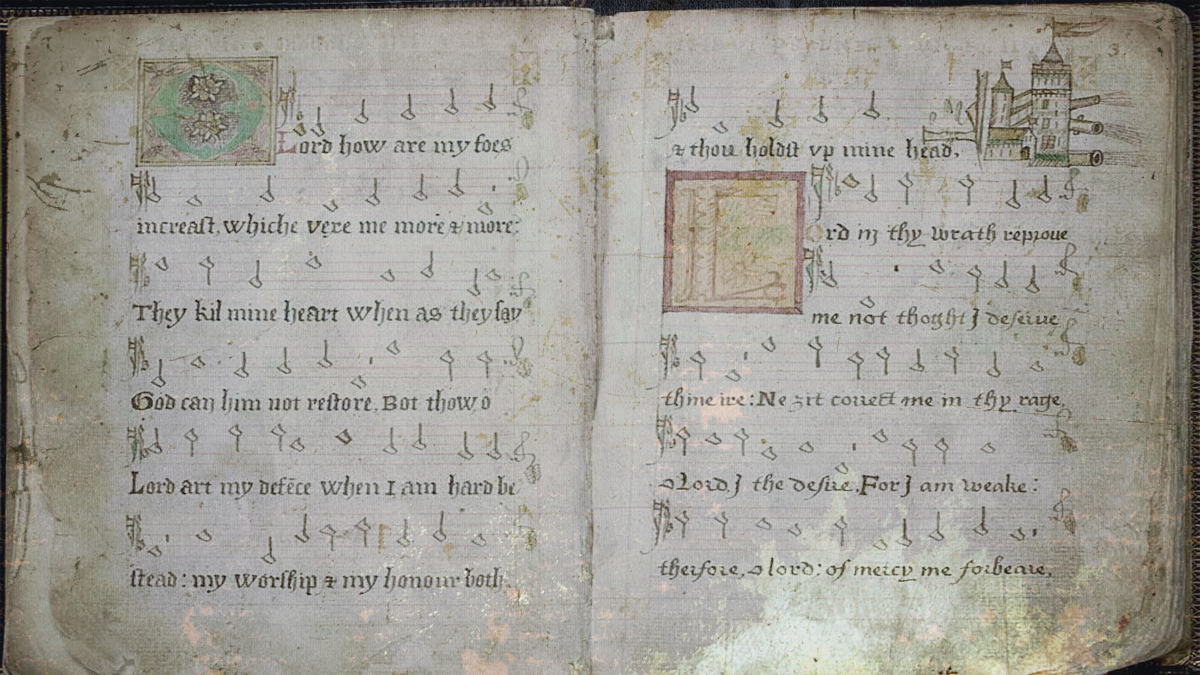 Lord how are my foes
increast, whiche vexe me more & more:
They kil mine heart when as they say
God can him not restore. Bot thow ô
Lord art my defēce when I am hard be
stead: my worship & my honour both.
3
& thou holdst vp mine head.
Ord in thy wrath reproue
me not thoght J deserue
thine ire: Ne zit correct me in thy rage,
o Lord, J the desire. For J am weake:
therfore, o lord: of mercy me forbeare,